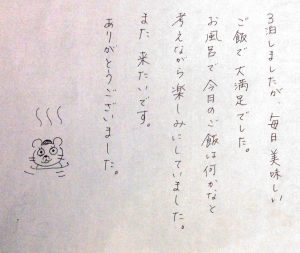 3泊しましたが、毎日美味しい
ご飯で大満足でした。
お風呂で今日のご飯は何かなと
考えながら楽しみにしていました。
また来たいです。
ありがとうございました。